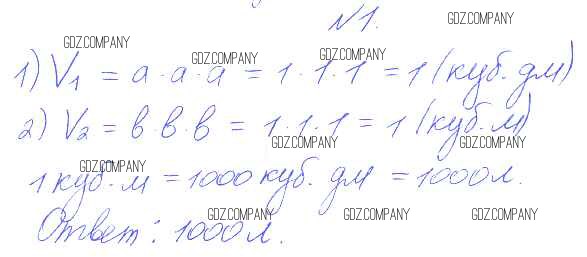 №1.
1) V₁ = a · a · a = 1 · 1 · 1 = 1 (куб. дм)
2) V₂ = в · в · в = 1 · 1 · 1 = 1 (куб. м)
1 куб. м = 1000 куб. дм = 1000 л.
Ответ: 1000 л.
GDZ.COMPANY
GDZ.COMPANY
GDZ.COMPANY
GDZ.COMPANY
GDZ.COMPANY
GDZ.COMPANY
GDZ.COMPANY
GDZ.COMPANY
GDZ.COMPANY
GDZ.COMPANY